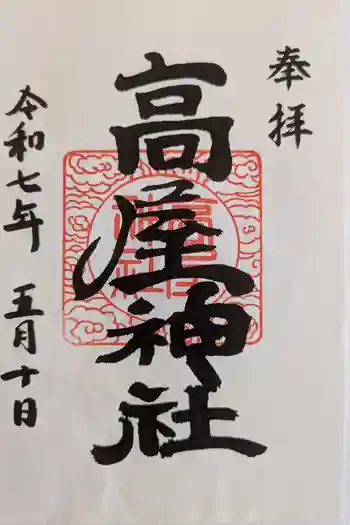 奉拝
高屋神社
令和七年 五月十日